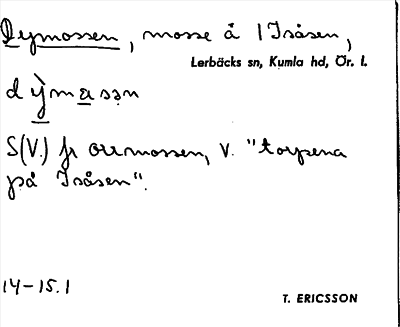 Dymossen, mosse å 1 Isåsen,
Lerbäcks sn, Kumla hd, Ör. l.
dỳmasən
S(V.) fr orrmossen, V. "torpena
på Isåsen".
14-15.1
T. ERICSSON